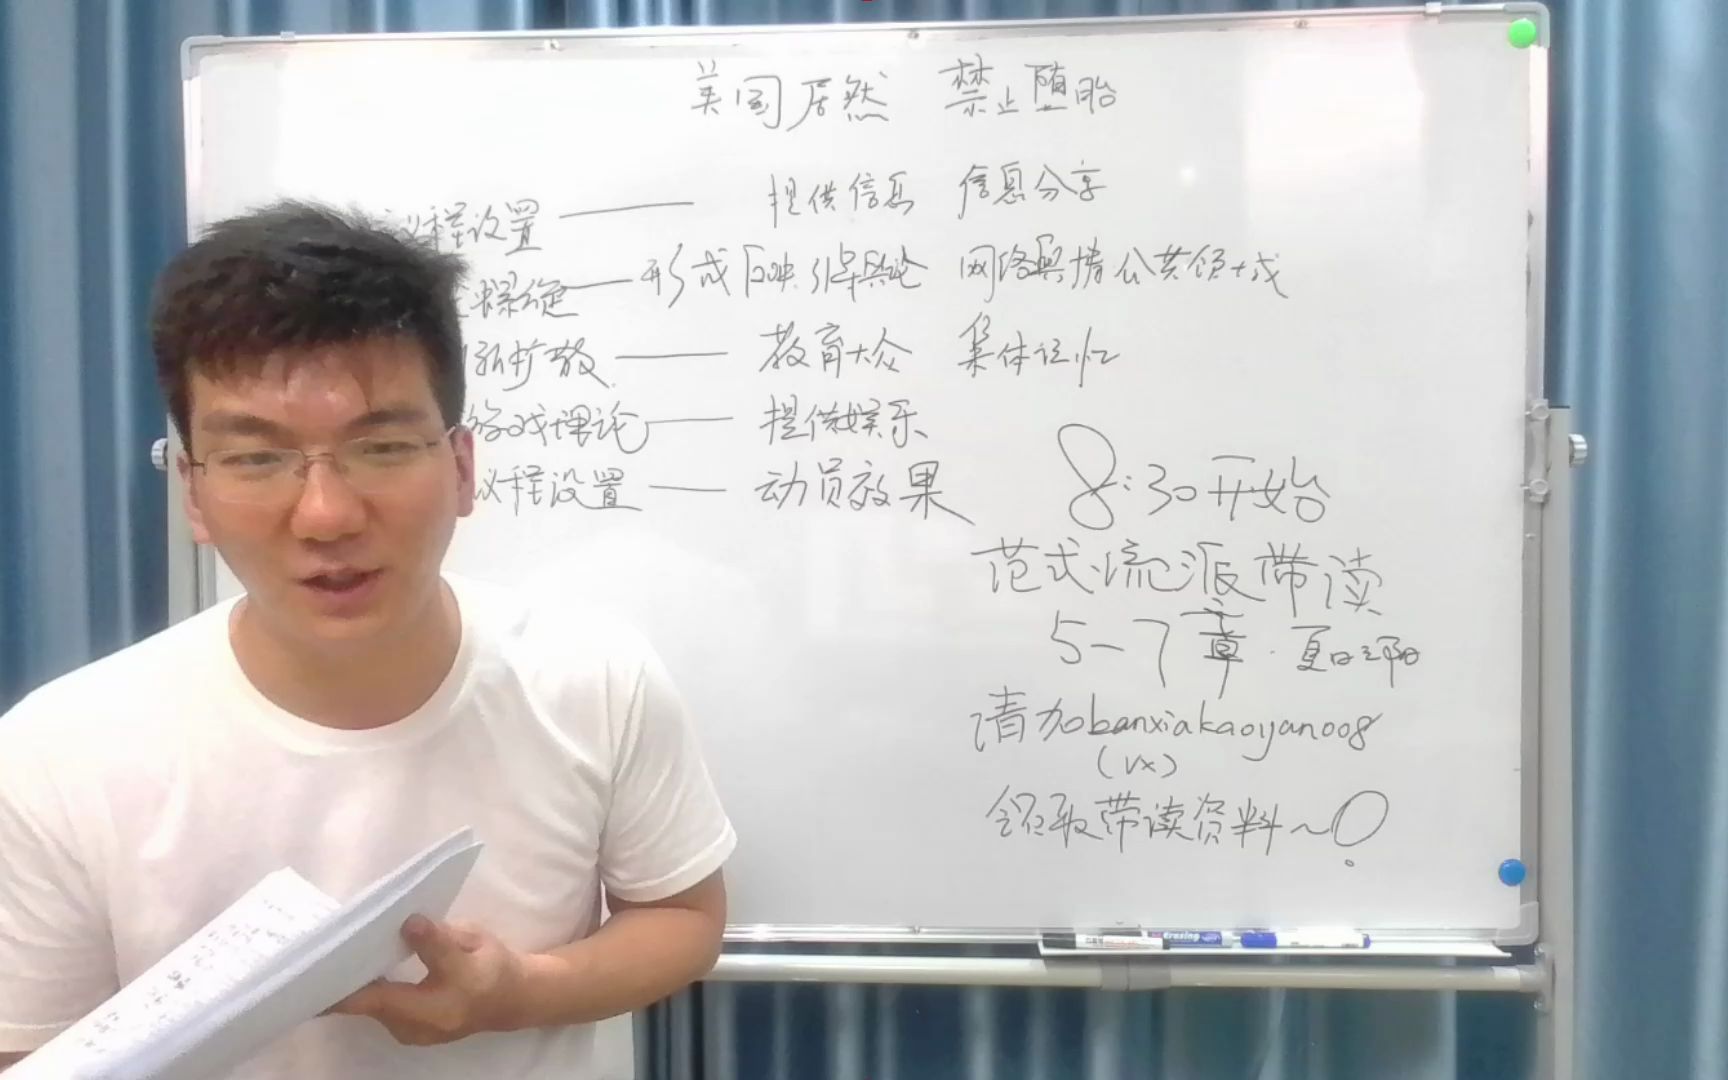 美国居然 禁止堕胎
议程设置 —— 提供信息 信息分享
螺旋 —— 形成反映引导舆论 网络舆情公共领域
新扩散 —— 教育大众 集体记忆
游戏理论 —— 提供娱乐
议程设置 —— 动员效果
8:30开始
范式流派带读
5-7章·夏日之阳
请加banxiakaoyan008
(vx)
领取带读资料~!
Erasing